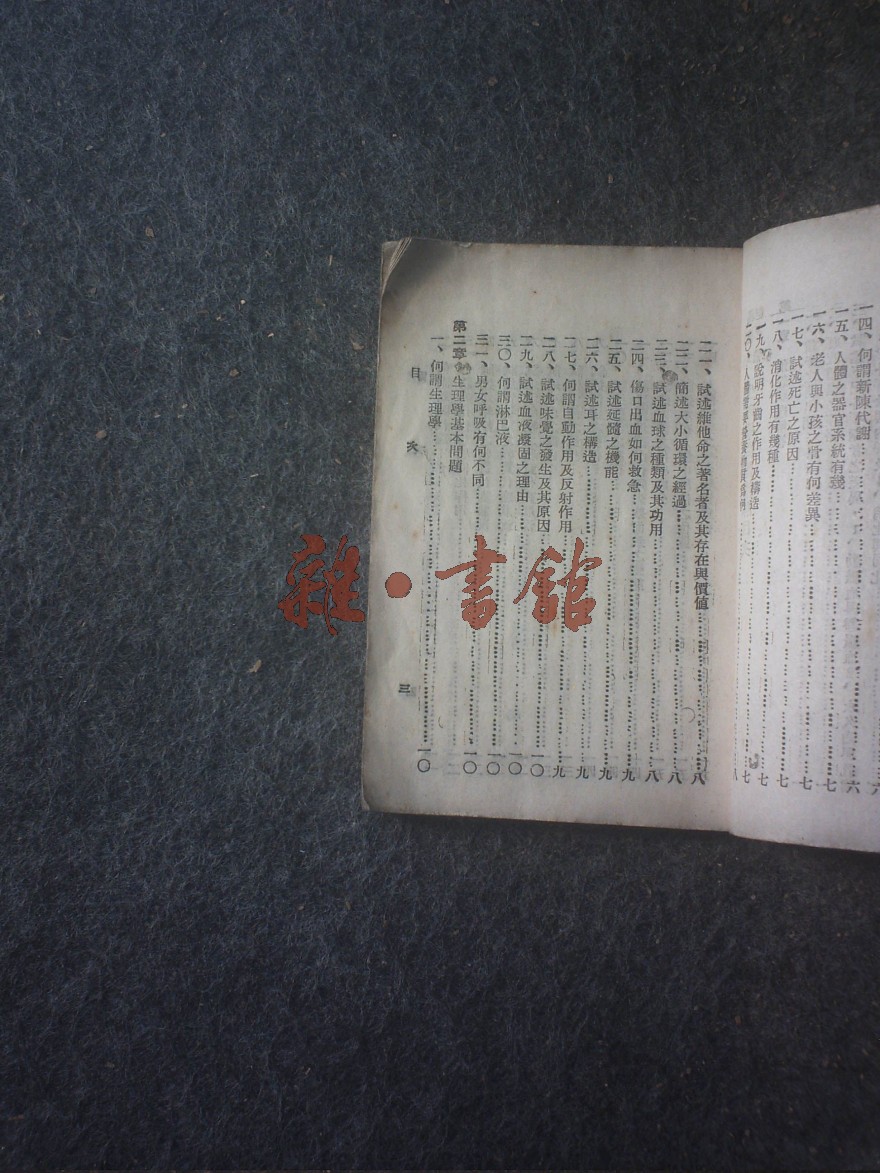 一四、何謂新陳代謝……六
一五、人體之器官系統有幾……六
一六、老人與小孩之骨有何差異……七
一七、試述死亡之原因……七
一八、消化作用有幾種……七
一九、說明牙齒之作用及構造……七
二〇、人體……八
二一、試述維他命之著名者及其存在與價値……八
二二、簡述大小循環之經過……八
二三、試述血球之種類及其功用……八
二四、傷口出血如何救急……九
二五、試述延髓之機能……九
二六、試述耳之構造……九
二七、何謂自動作用及反射作用……九
二八、試述味覺之發生及其原因……一〇
二九、試述血液凝固之理由……一〇
三〇、何謂淋巴液……一〇
三一、男女呼吸有何不同……一〇
第二章 生理學基本問題
一、何謂生理學……一〇
目 次
三
雜·書館